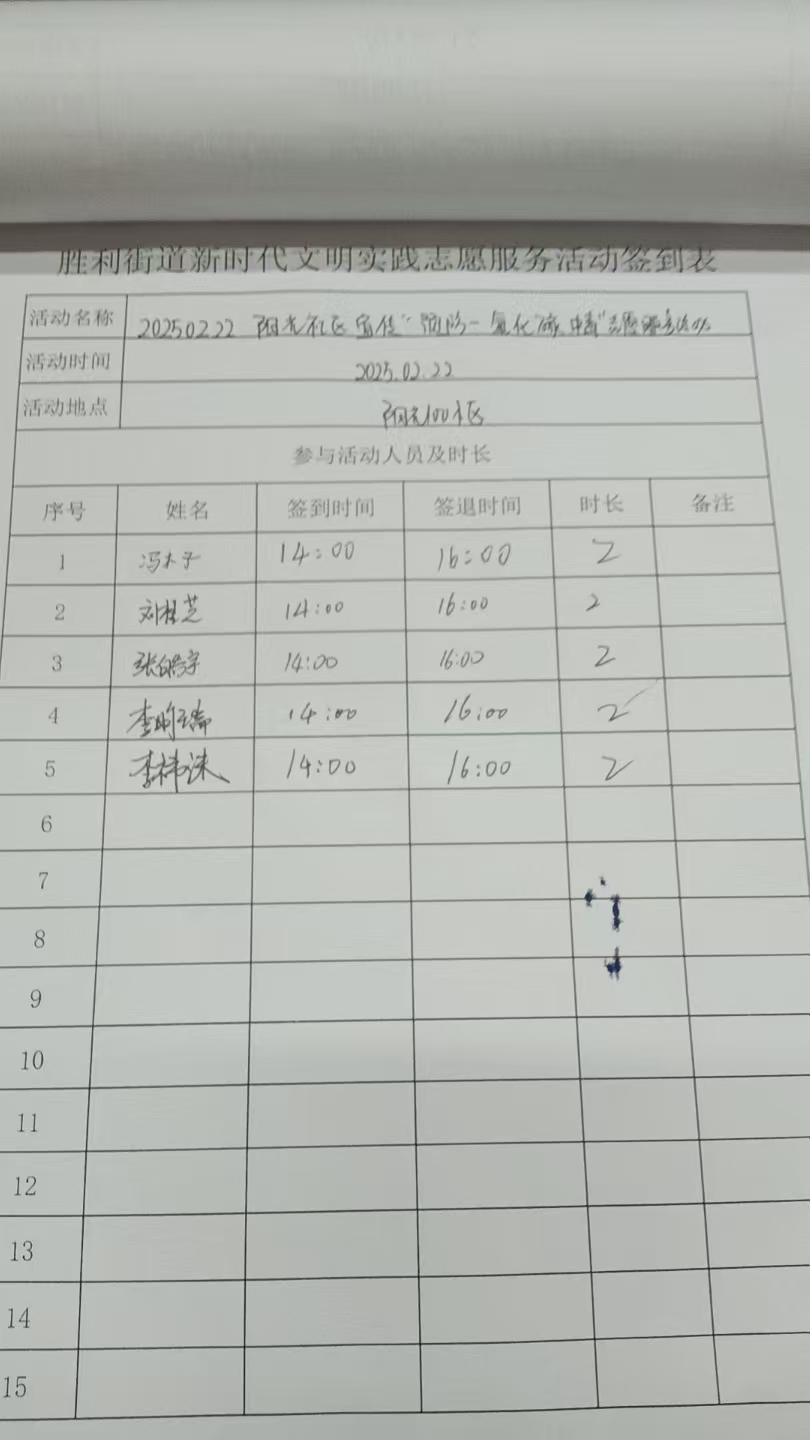 胜利街道新时代文明实践志愿服务活动签到表
活动名称 20250222 阳光社区宣传“预防一氧化碳中毒”志愿服务活动
活动时间 2025.02.22
活动地点 阳光100社区
参与活动人员及时长
序号 姓名 签到时间 签退时间 时长 备注
1 冯木子 14:00 16:00 2
2 刘桂芝 14:00 16:00 2
3 张皓宇 14:00 16:00 2
4 李明瑞 14:00 16:00 2
5 李祎洙 14:00 16:00 2
6
7
8
9
10
11
12
13
14
15